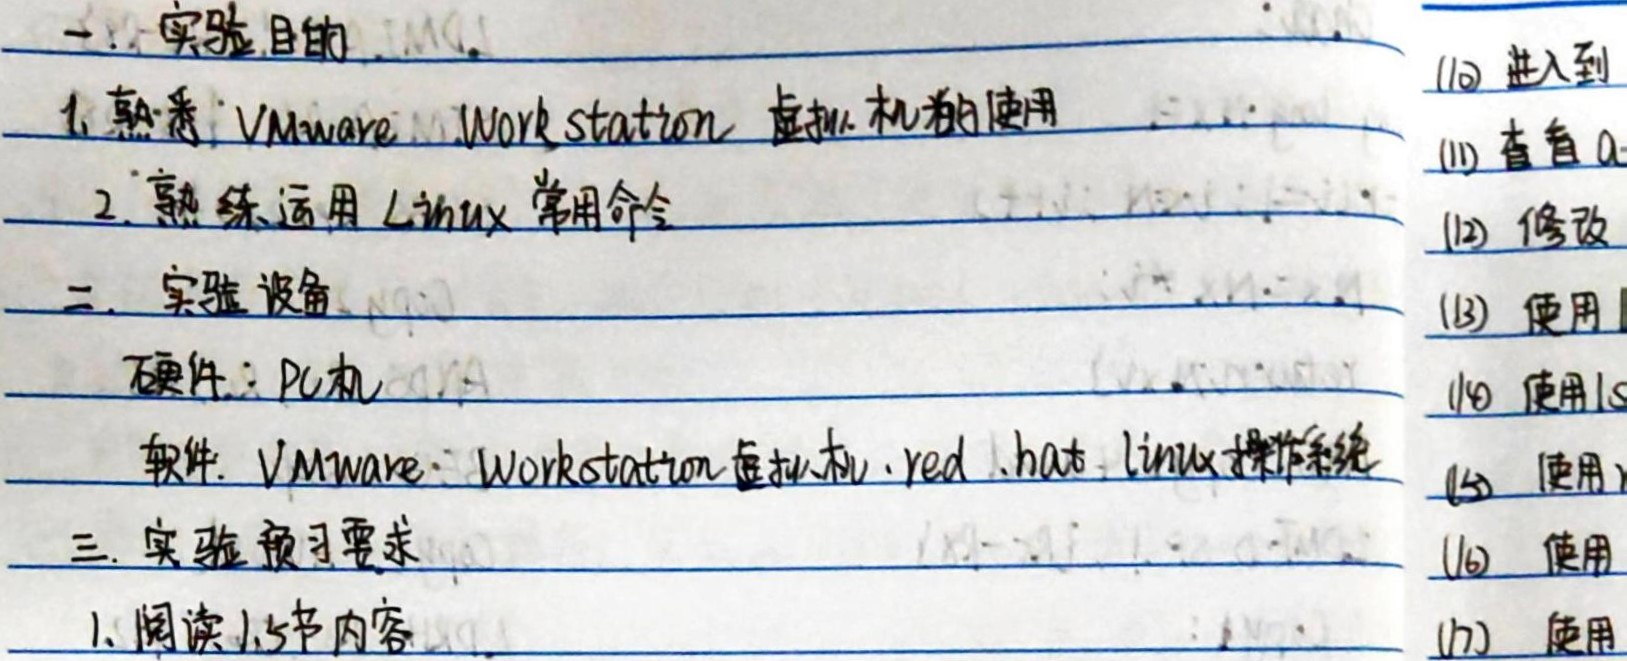 一. 实验目的
1. 熟悉 VMware Workstation 虚拟机的使用
2. 熟练运用 Linux 常用命令
二. 实验设备
硬件: PC机
软件. VMware Workstation虚拟机. red hat linux操作系统
三. 实验预习要求
1. 阅读1.5节内容
(10) 进入到
(11) 查看 a
(12) 修改
(13) 使用
(14) 使用 ls
(15) 使用
(16) 使用
(17) 使用